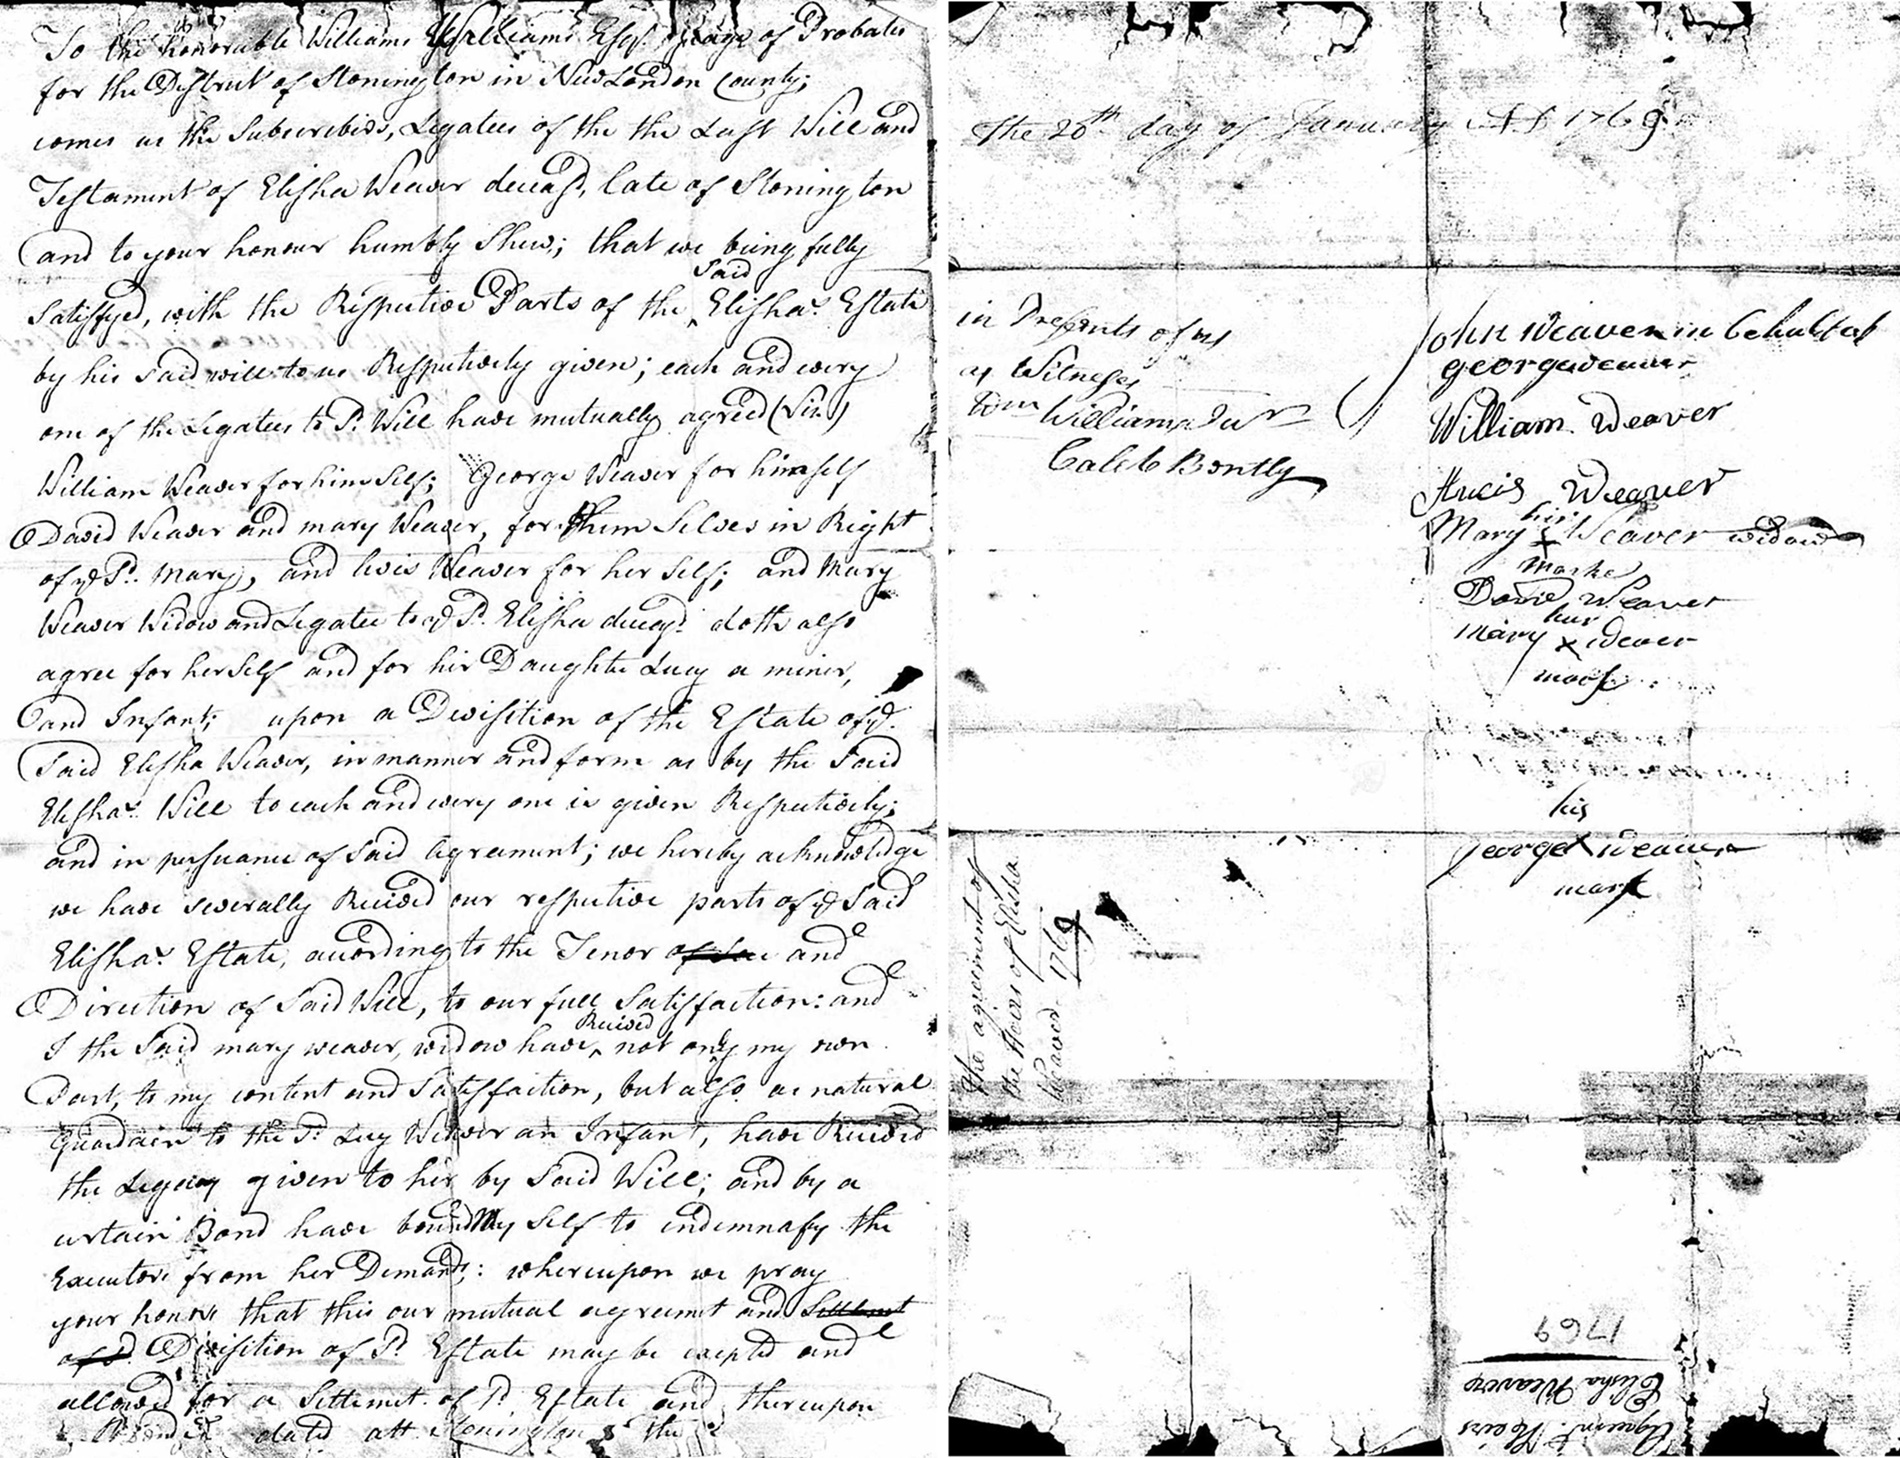 To the Honorable William Williams Esqr. Judge of Probates
for the District of Stonington in New London County;
comes us the Subscribers, Legatees of the the Last Will and
Testament of Elisha Weaver deceasd, late of Stonington
and to your honour humbly Shew; that we being fully
Said
Satisfyed, with the Respective Parts of the Elishas Estate
by his Said will to us Respectively given; each and every
one of the Legatees to Sd. Will have mutually agreed (Viz.)
William Weaver for him Self; George Weaver for himself
David Weaver and mary Weaver, for them Selves in Right
of ye Sd. Mary, and Weaver for her Self; and Mary
Weaver Widow and Legatee to ye Sd. Elisha deceasd. doth also
agree for her Self and for her Daughter Lucy a miner,
and Infant; upon a Divisition of the Estate of ye.
Said Elisha Weaver, in manner and form as by the Said
Elishas Will to each and every one is given Respectively;
and in persuance of Said Agreament; we hereby acknowledge
we have severally Recived our respective parts of ye Said
Elishas Estate, according to the Tenor of and
Direction of Said Will, to our full Satisfaction: and
Recived
I the Said mary weaver, widow have not only my own
Part, to my content and Satisfaction, but also as natural
Guardain to the Sd. Lucy Weaver an Infant, have Recived
the Legacy given to her by Said Will; and by a
certain Bond have bound My Self to indemnafy the
Executors from her Demands: whereupon we pray
your honour that this our mutual agreamet and Settlemet
of Sd. Divisition of Sd. Estate may be excepted and
allowed for a Settlemet. of Sd. Estate and thereupon
dated att Stonington the
The 20th day of January AD 1769
in Presents of us
as Witneses
Wm Williams Junr
Caleb Bently
John Weaver in behalf of
george weaver
William Weaver
Weaver
her
Mary X Weaver widow
marke
David Weaver
hur
Mary X Wever
mark
his
george X weaver
mark
The agreement of
the Heirs of Elisha
Weaver 1769
Agreemt. Heirs
Elisha Weavers
1769